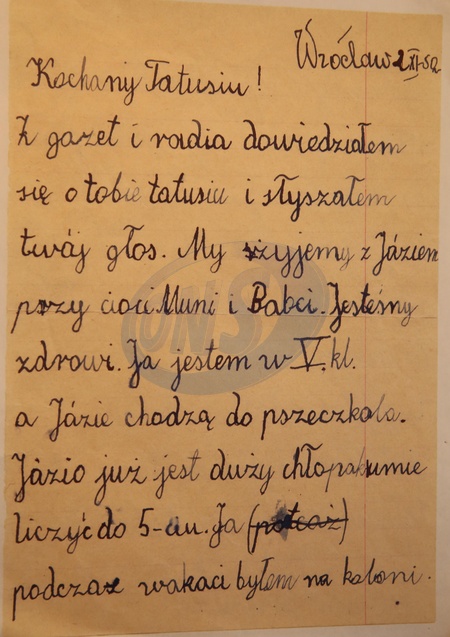 Wrocław 2 XI-52
Kochany Tatusiu!
Z gazet i radia dowiedziałem
się o tobie tatusiu i słyszałem
twój głos. My żyjemy z Józiem
przy cioci Muni i Babci. Jesteśmy
zdrowi. Ja jestem w V. kl.
a Józie chodzą do pszeczkola.
Józio już jest duży chłopak umie
liczyć do 5-ciu. Ja
podczas wakaci byłem na koloni.